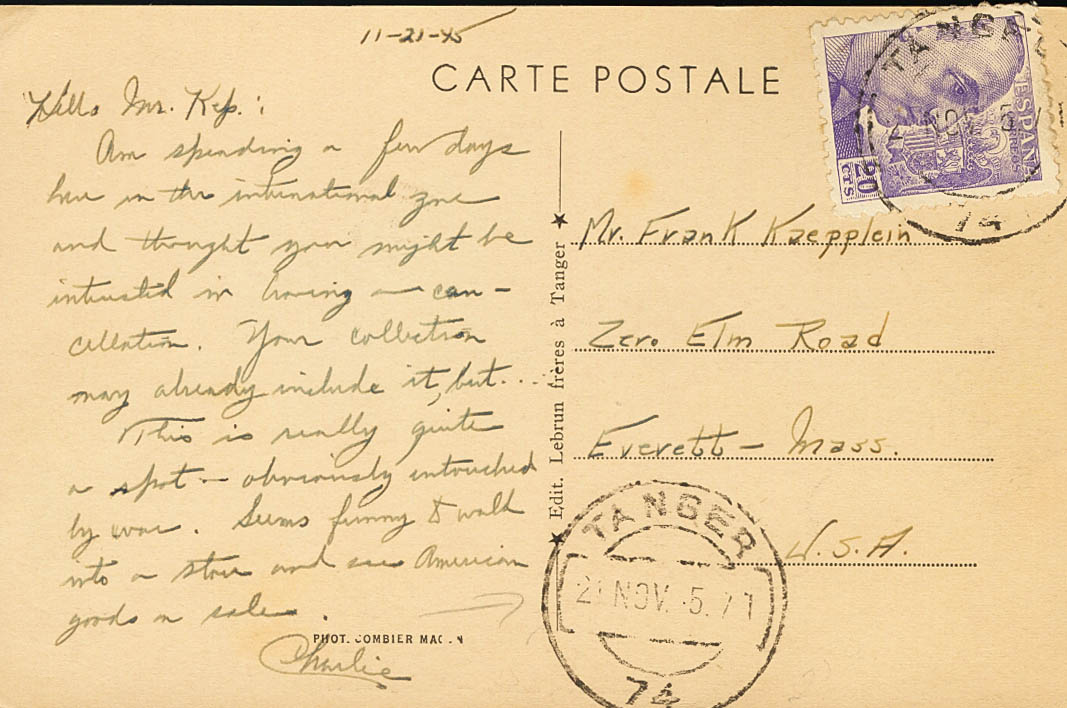 11-21-45
CARTE POSTALE
Hello Mr. Kep.:
Am spending a few days
here in the international zone
and thought you might be
interested in having a can-
cellation. Your collection
may already include it, but...
This is really quite
a spot - obviously untouched
by war. Seems funny to walk
into a store and see American
goods on sale.
Charlie
PHOT. COMBIER MACON
Edit. Lebrun frères à Tanger
Mr. Frank Kaepplein
Zero Elm Road
Everett - Mass.
U.S.A.
TANGER
NOV
74
ESPAÑA
CORREOS
20
CTS
TANGER
21 NOV. 5.
74